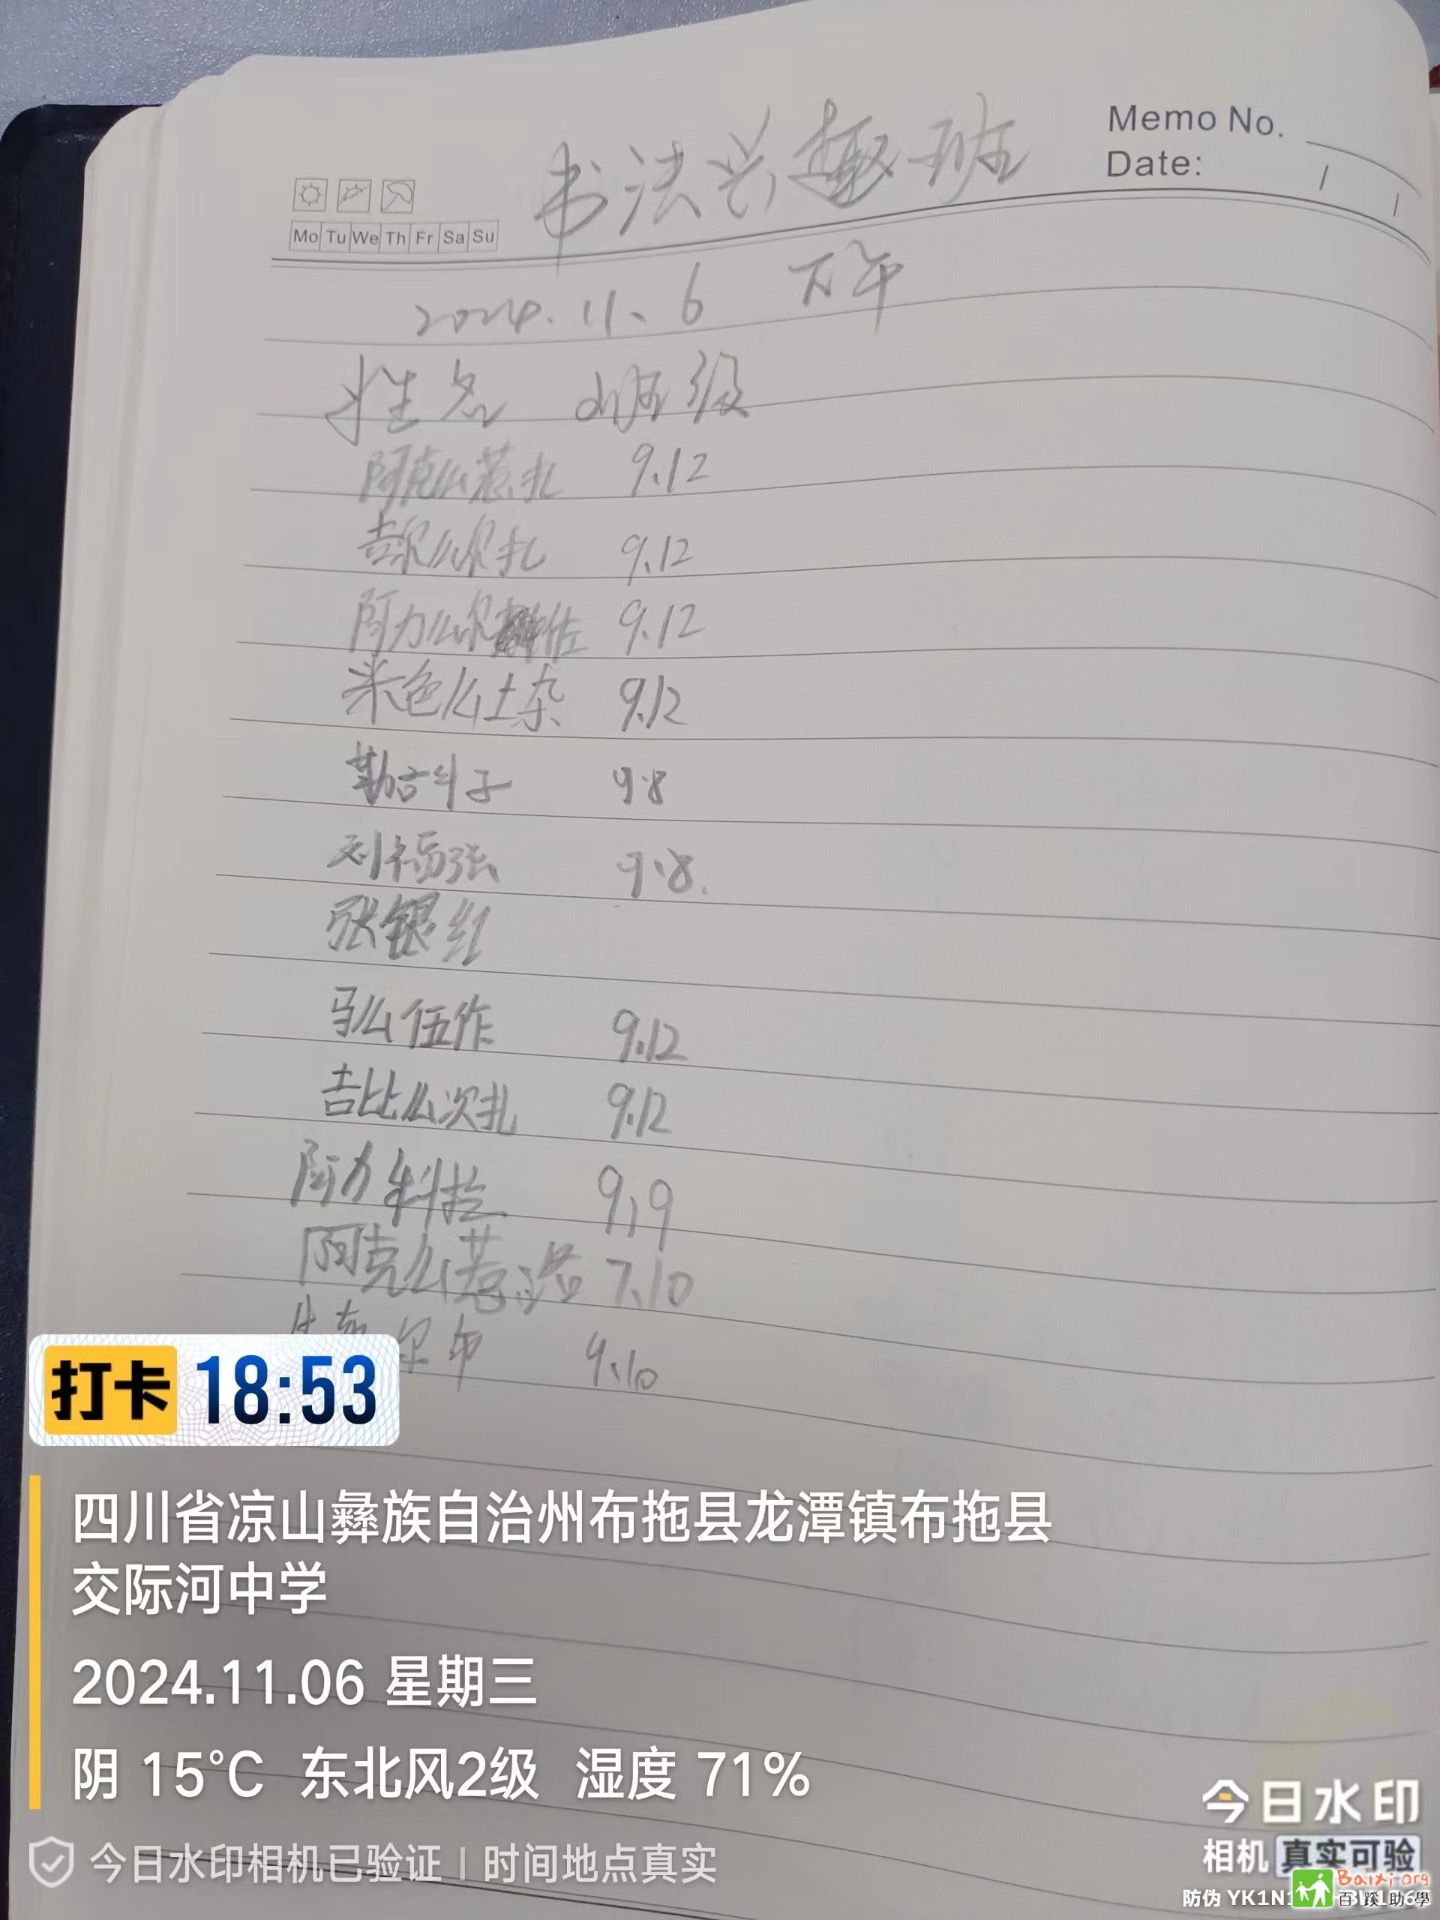 Memo No.
Date: / /
Mo Tu We Th Fr Sa Su
书法兴趣班
2024.11.6 下午
姓名 班级
阿克么惹扎 9.12
吉尔么尔扎 9.12
阿力么尔作 9.12
米色么土杂 9.12
勒古斗子 9.8
刘福强 9.8.
张银红
马么伍作 9.12
吉比么次扎 9.12
阿力科拉 9.9
阿克么惹洛 7.10
9.10
打卡 18:53
四川省凉山彝族自治州布拖县龙潭镇布拖县
交际河中学
2024.11.06 星期三
阴 15°C 东北风2级 湿度 71%
今日水印相机已验证 | 时间地点真实
今日水印
相机 真实可验
防伪 YK1N1
Baixi.org
百蹊助學